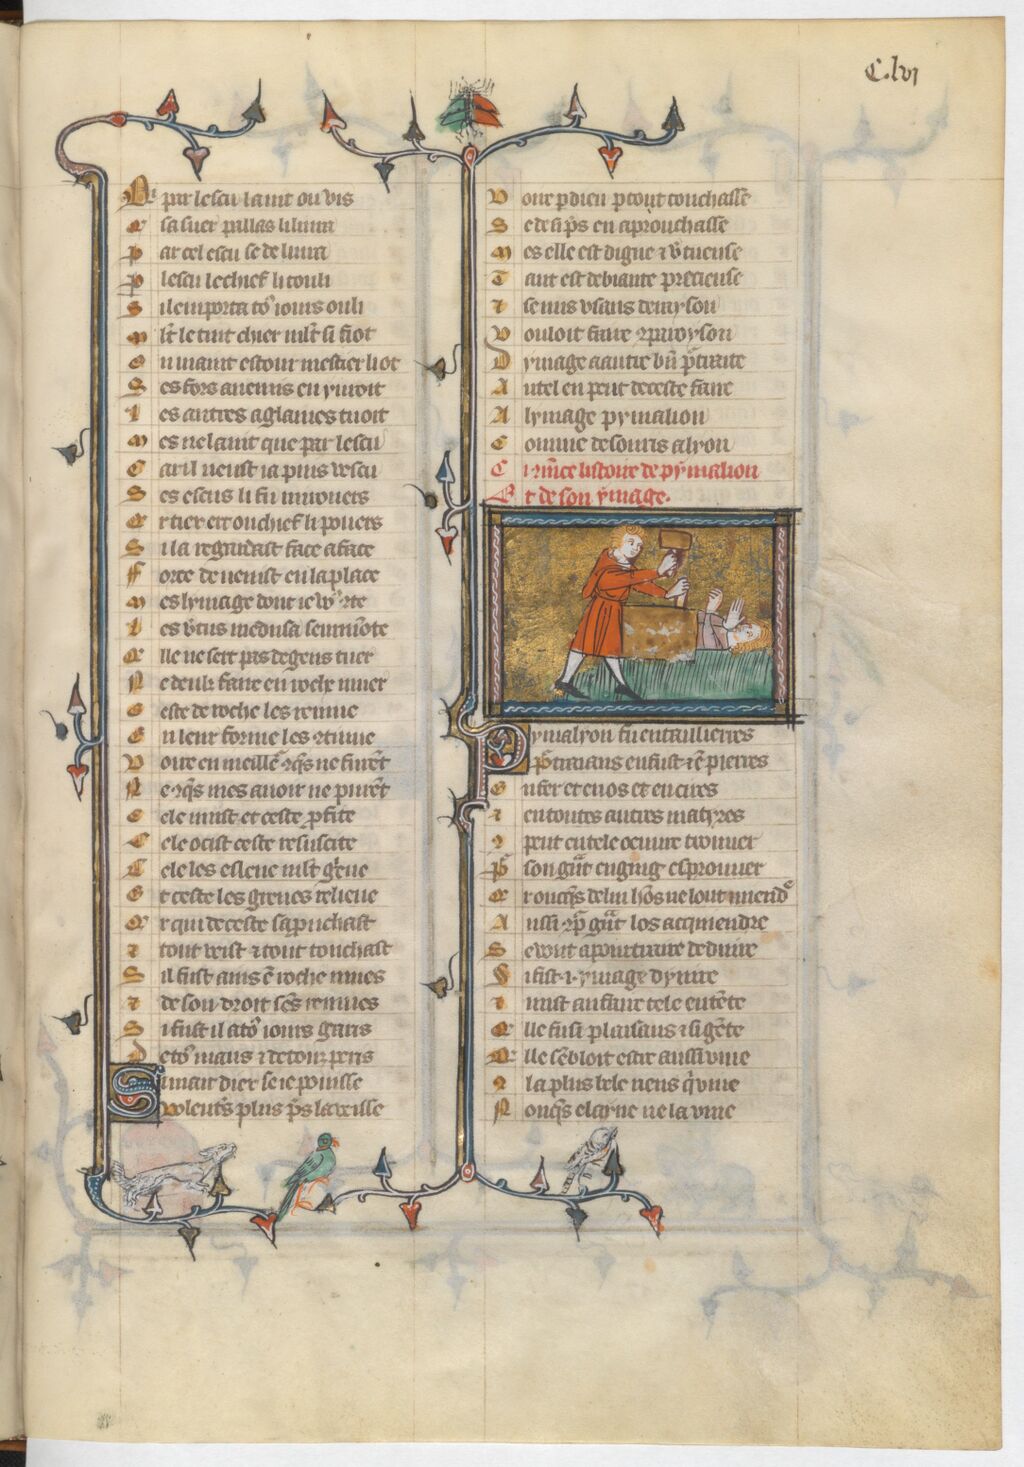 C.lvi
Qi par lescu la vit ou vis
Q sa suer pallas li livra
P ar cel escu se delivra
P lescu le chief li touli
S il emporta to9 iours o uli
M lt le tint chier mlt si fiot
E n maint estour mestier li ot
S es fors anemis en
L es autres a glaives tuoit
M es ne lavit que par lescu
C ar il neust ia puis vescu
S es escus li fu mirouers
Q r tiex ert ou chief li pouers
S il a regardast face a face
F orce devenist en la place
M es lymage dont ie
L es vtus medusa
Q lle ne sert pas de gens tuer
N e deulz faire en roche muer
C este de roche les remue
E n leur forme les
V oire en meille
N e mes avoir ne
C ele nuist et ceste pfite
C ele ocist ceste resuscite
C ele les esleve mlt grieve
E t ceste les greves relieve
Q r qui de ceste sapruchast
E tout veist et tout touchast
S il fust ains en roche mues
E de son droit sens remues
S i fust il a to9 iours garis
D e to9 maus et de touz peris
Si mait diex se ie pouisse
Volentiers plus pres la veisse
V oire p dieu p tout touchasse
S e de si pres en aprouchasse
M es elle est digne et vtueuse
T ant est de biaute precieuse
E se nus usans de raison
V ouloit faire comparoyson
D ymage a autre bien pourtraite
A utel en peut de ceste faire
A lymage pymalion
C omme de souris a lyon
C i commence listoire de pymalion
Et de son ymage.
Pymalyon fu entaillierres
Pourtraians en fust et en pierres
E n fer et en os et en cires
E en toutes autres matyres
Q peut en tele oeuvre trouver
P son grant enging esprouver
Q r onques de lui hons ne lout
A ussi com pour grant los acquiendre
S e vout a pourtraire deduire
S i fist .i. ymage dyvire
E mist au faire tele entente
Q lle fu si plaisans et si gente
Q lle sembloit estre aussi vive
Q la plus bele riens qui vive
N onques elayne ne lavine